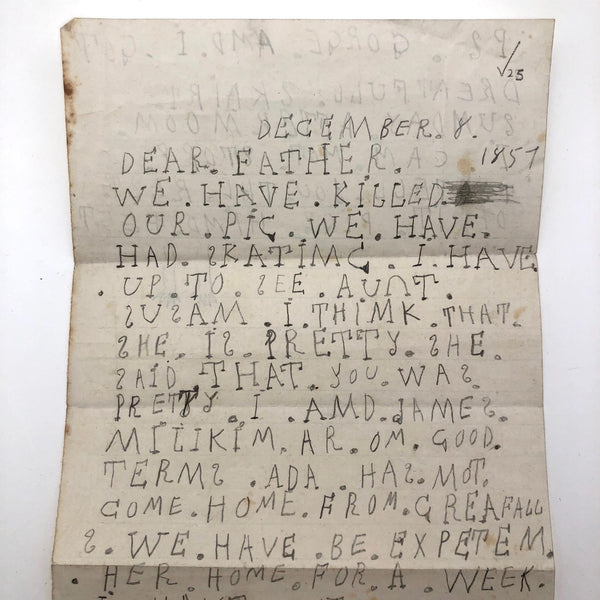 √25
DECEMBER. 8.
DEAR. FATHER. 1857
WE. HAVE. KILLED.
OUR. PIC. WE. HAVE.
HAD. SKATIMC. I. HAVE.
. UP. TO. SEE. AUNT.
SUSAM. I. THIMK. THAT.
SHE. IS. PRETTY. SHE.
SAID THAT. YOU. WAS.
PRETTY. I. AMD. JAMES.
MILIKIM. AR. OM. GOOD.
TERMS. ADA. HAS. MOT.
COME. HOME. FROM. GREAFALL
S. WE. HAVE. BE. EXPETEM.
. HER. HOME. FOR. A. WEEK.